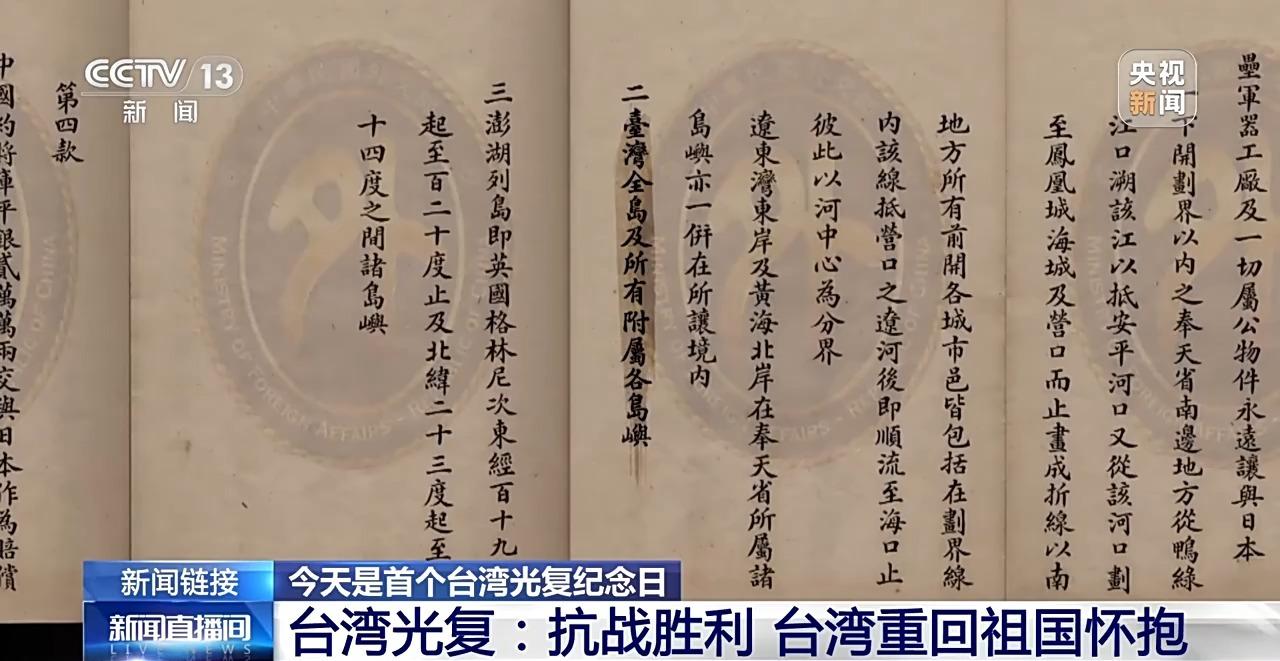 壘軍器工廠及一切屬公物件永遠讓與日本
下開劃界以內之奉天省南邊地方從鴨綠
江口溯該江以抵安平河口又從該河口劃
至鳳凰城海城及營口而止畫成折線以南
地方所有前開各城市邑皆包括在劃界線
內該線抵營口之遼河後即順流至海口止
彼此以河中心為分界
遼東灣東岸及黃海北岸在奉天省所屬諸
島嶼亦一併在所讓境內
二臺灣全島及所有附屬各島嶼
三澎湖列島即英國格林尼次東經百十九
起至百二十度止及北緯二十三度起至
十四度之間諸島嶼
第四款
中國約將庫平銀貳萬萬兩交與日本作為賠償
CCTV 13
新闻
央视
新闻
MINISTRY OF FOREIGN AFFAIRS
新闻链接
今天是首个台湾光复纪念日
新闻直播间
LIVE NEWS
台湾光复：抗战胜利 台湾重回祖国怀抱